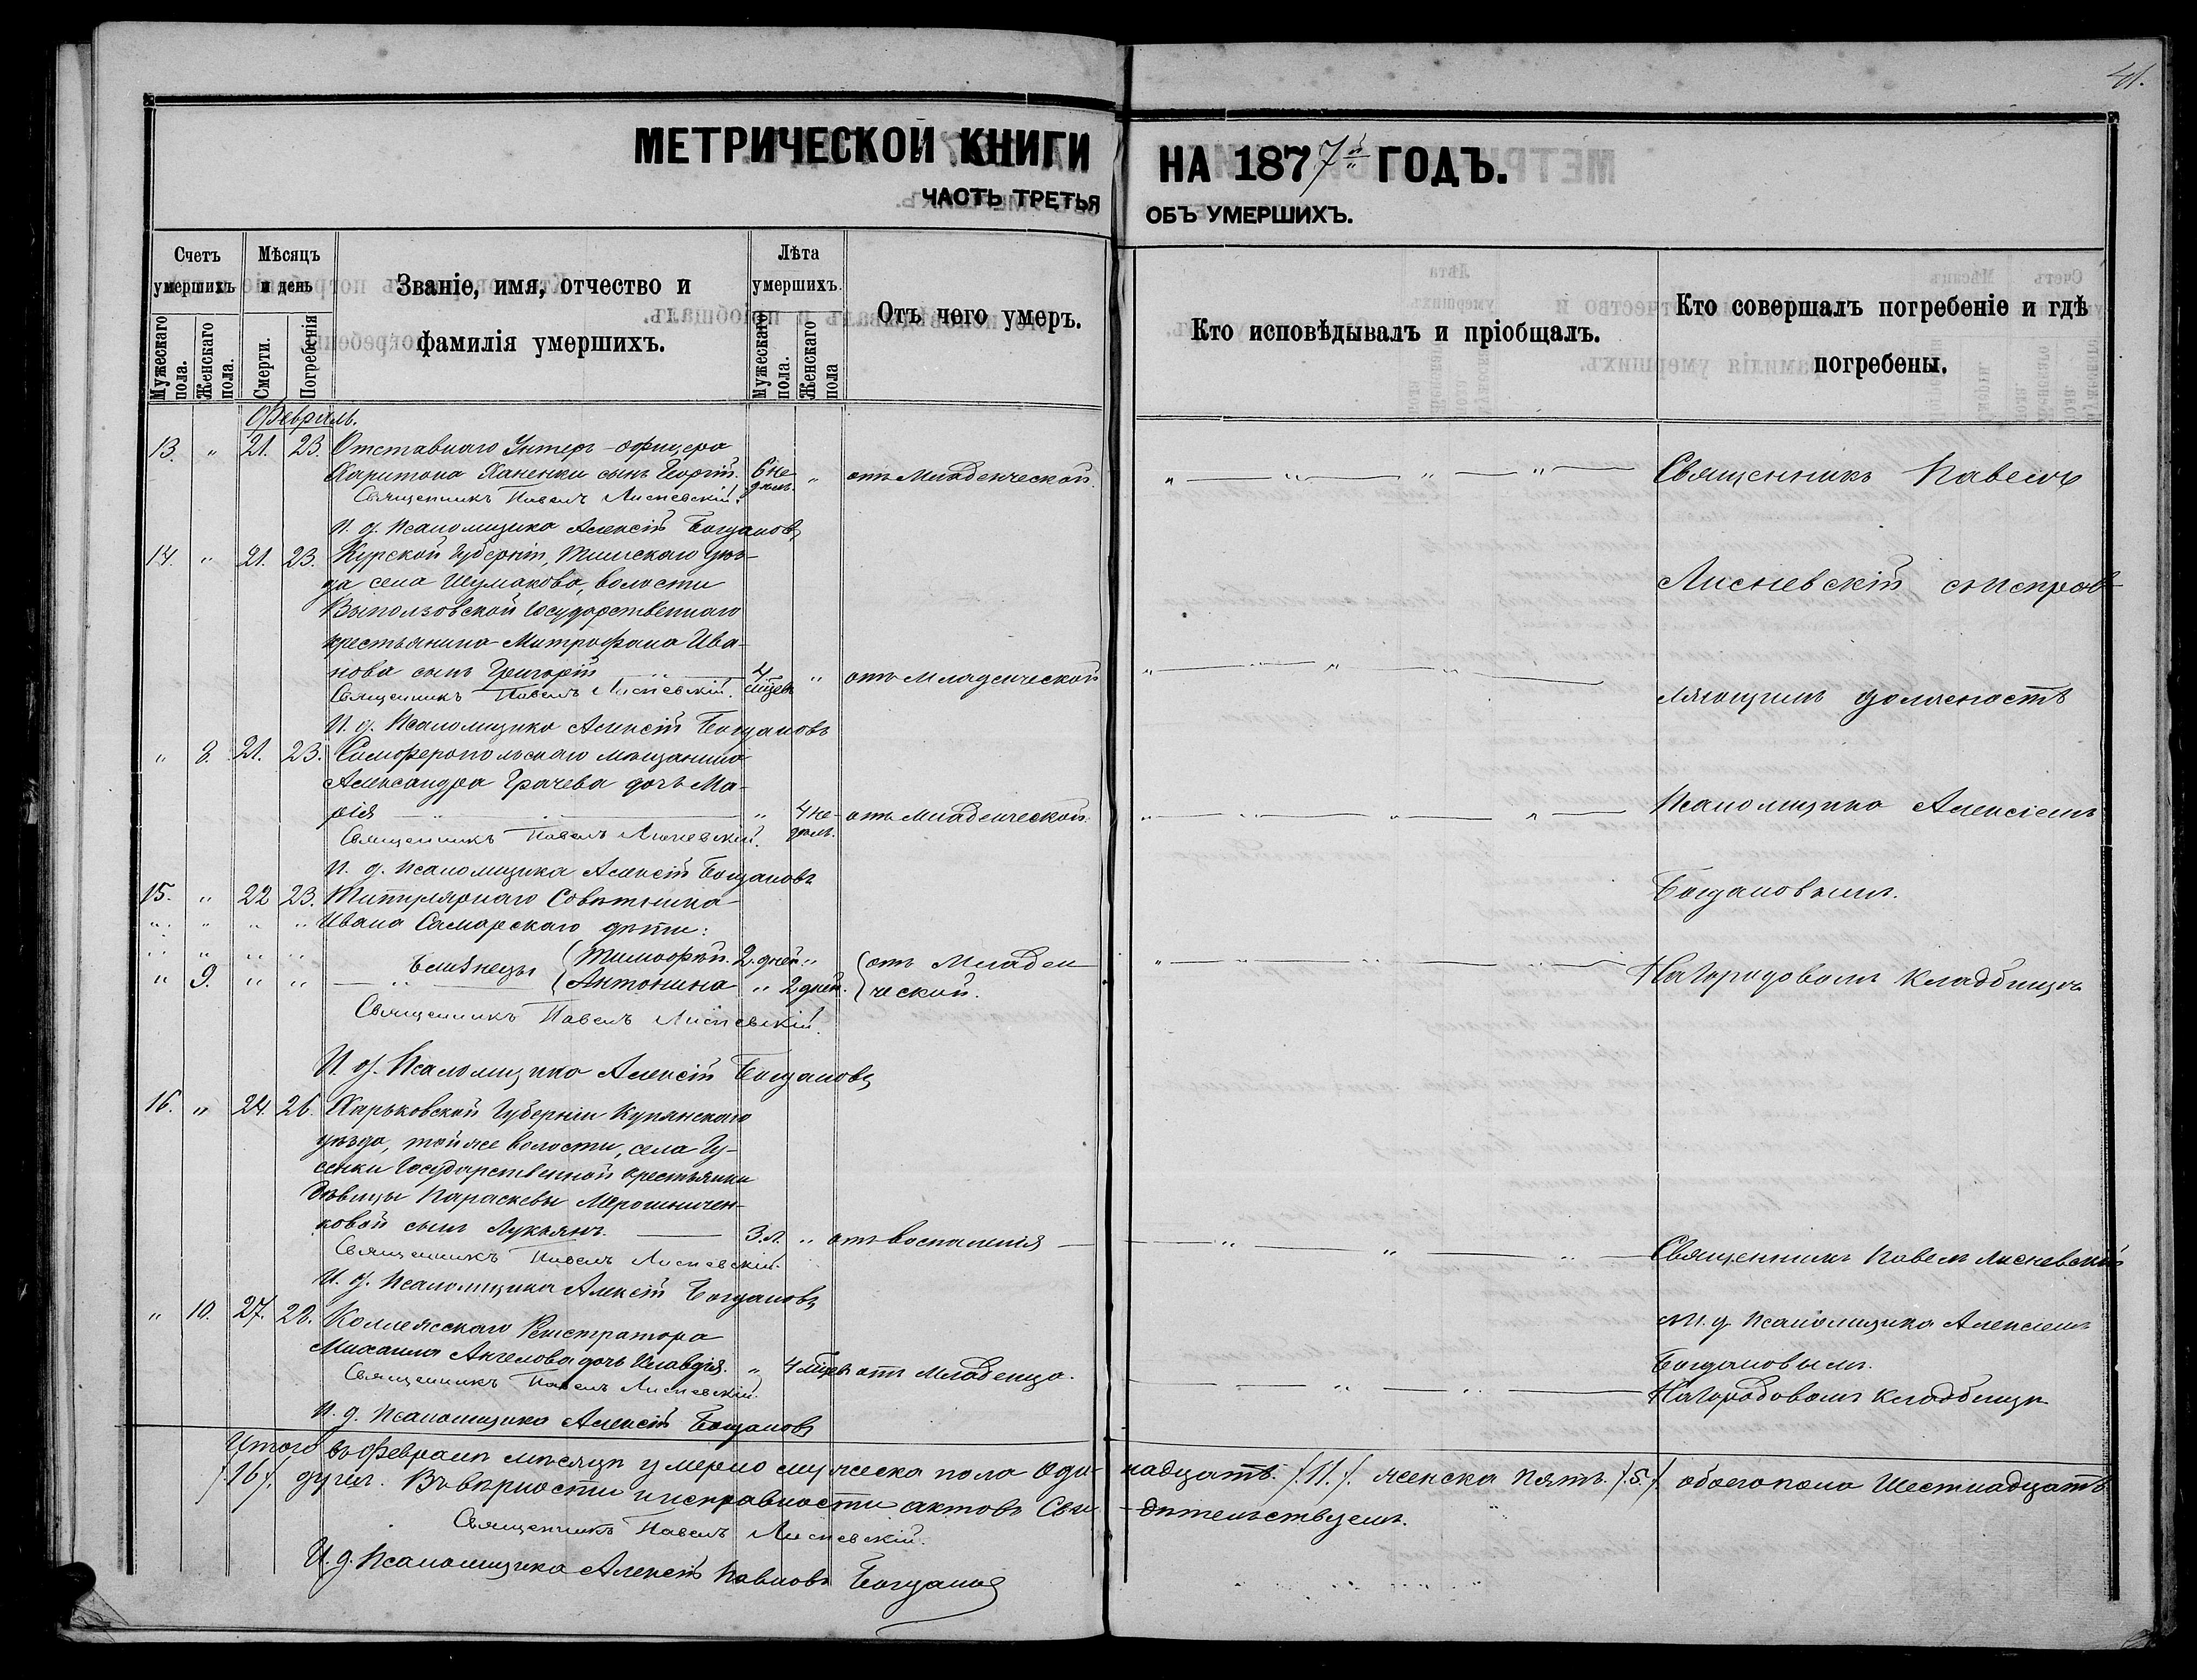 41.
МЕТРИЧЕСКОЙ КНИГИ НА 1877й ГОДЪ.
ЧАСТЬ ТРЕТЬЯ ОБЪ УМЕРШИХЪ.
Счетъ умершихъ
Мужескаго пола.
Женскаго пола.
Мѣсяцъ и день
Смерти.
Погребенія
Званіе, имя, отчество и
фамилія умершихъ.
Лѣта умершихъ.
Мужескаго пола.
Женскаго пола
Отъ чего умеръ.
Кто исповѣдывалъ и пріобщалъ.
Кто совершалъ погребеніе и гдѣ
погребены.
Февраль.
13. " 21. 23. Отставнаго Унтеръ-офицера
Харитона Ханенки сынъ Георгій. 6 недѣль. " отъ Младенческой.
Священникъ Павелъ Лисневскій.
И. д. Псаломщика Алексій Богдановъ
14. " 21. 23. Курской Губерніи, Тимскаго уѣз-
да села Шумаково, волости
Выползовской Государственнаго
крестьянина Митрофана Ива-
нова сынъ Григорій 4 мѣсец. " отъ Младенческой
Священникъ Павелъ Лисневскій.
И. д. Псаломщика Алексій Богдановъ
" 8. 21. 23. Симферопольскаго мѣщанина
Александра Грачева дочь Ма-
рія " 4 недѣль. отъ Младенческой.
Священникъ Павелъ Лисневскій.
И. д. Псаломщика Алексій Богдановъ
15. " 22 23. Титулярнаго Совѣтника
" " " " Ивана Самарскаго дѣти:
" " " " Близнецы (Тимофѣй. 2. дней " (отъ Младен-
" 9. " " (Антонина " 2 дней. (ческой.
Священникъ Павелъ Лисневскій.
И. д. Псаломщика Алексій Богдановъ
16. " 24. 26. Харьковской Губерніи Купянскаго
уѣзда, тойже волости, села Гу-
сенки Государственной крестьянки
дѣвицы Параскевы Мерошничен-
ковой сынъ Лукьянъ. 3. л. " отъ воспаленія
Священникъ Павелъ Лисневскій.
И. д. Псаломщика Алексій Богдановъ
" 10. 27. 28. Коллежскаго Регистратора
Михаила Ангелова дочь Клавдія. " 4 мѣсец. отъ Младенца.
Священникъ Павелъ Лисневскій.
И. д. Псаломщика Алексій Богдановъ
Священникъ Павелъ
Лисневскій съ исправ-
ляющимъ должность
Псаломщика Алексіемъ
Богдановымъ.
На Городовомъ Кладбищѣ
Священникъ Павелъ Лисневскій
съ И. д. Псаломщика Алексіемъ
Богдановымъ.
На Городовомъ Кладбищѣ
Итого въ Февралѣ мѣсяцѣ умерло мужеска пола Оди- надцать /.11./. женска пять /.5./. обоего пола Шестнадцать
/.16/. душъ. Въ вѣрности и исправности актовъ Сви- дѣтельствуемъ.
Священникъ Павелъ Лисневскій.
И. д. Псаломщика Алексій Павловъ Богдановъ